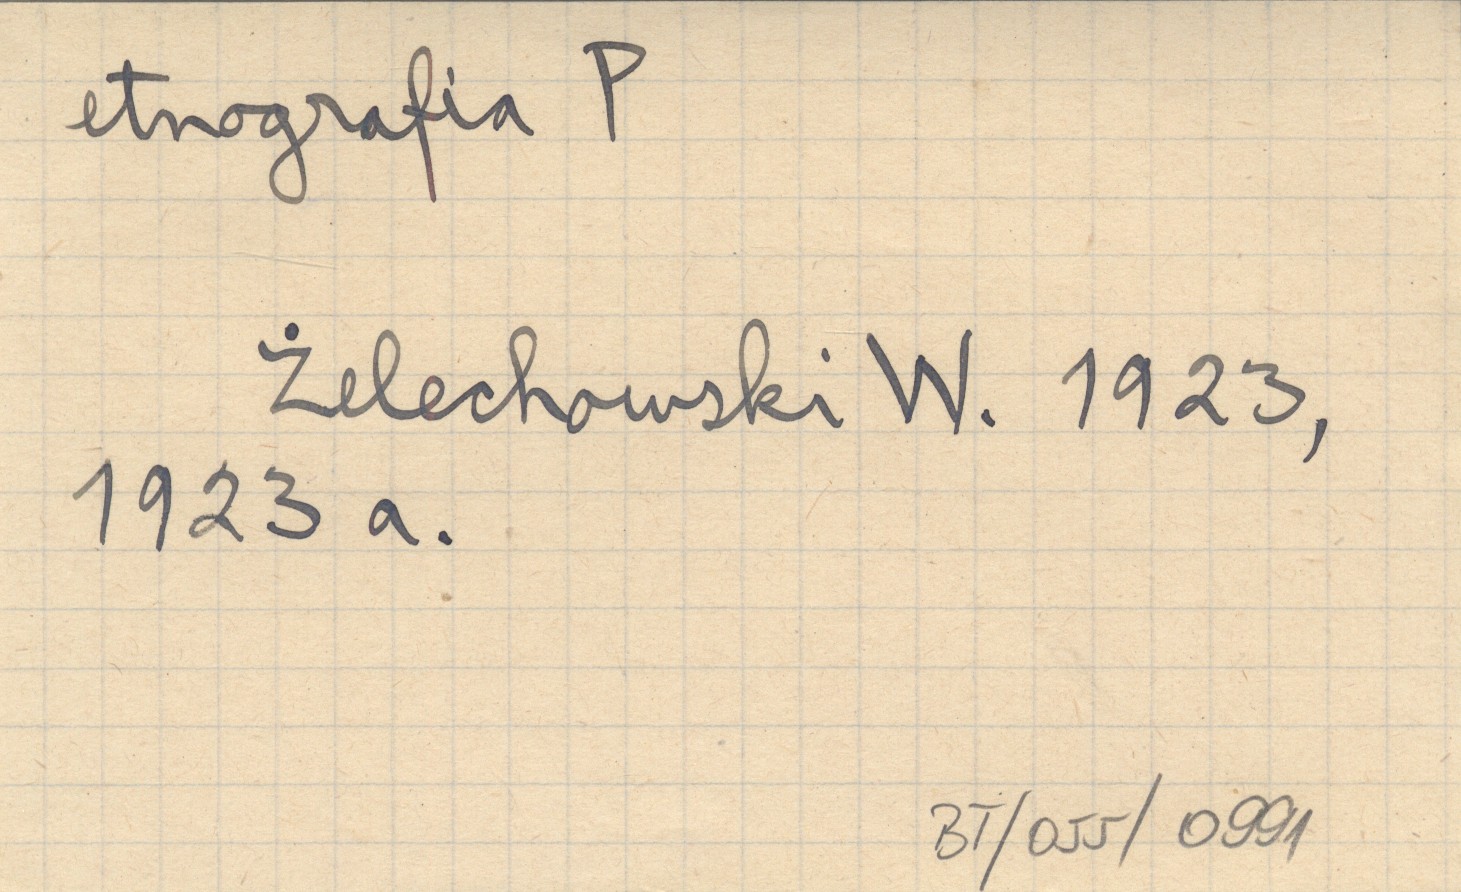 etnografia P
Żelechowski W. 1923,
1923 a.
BT/055/0991